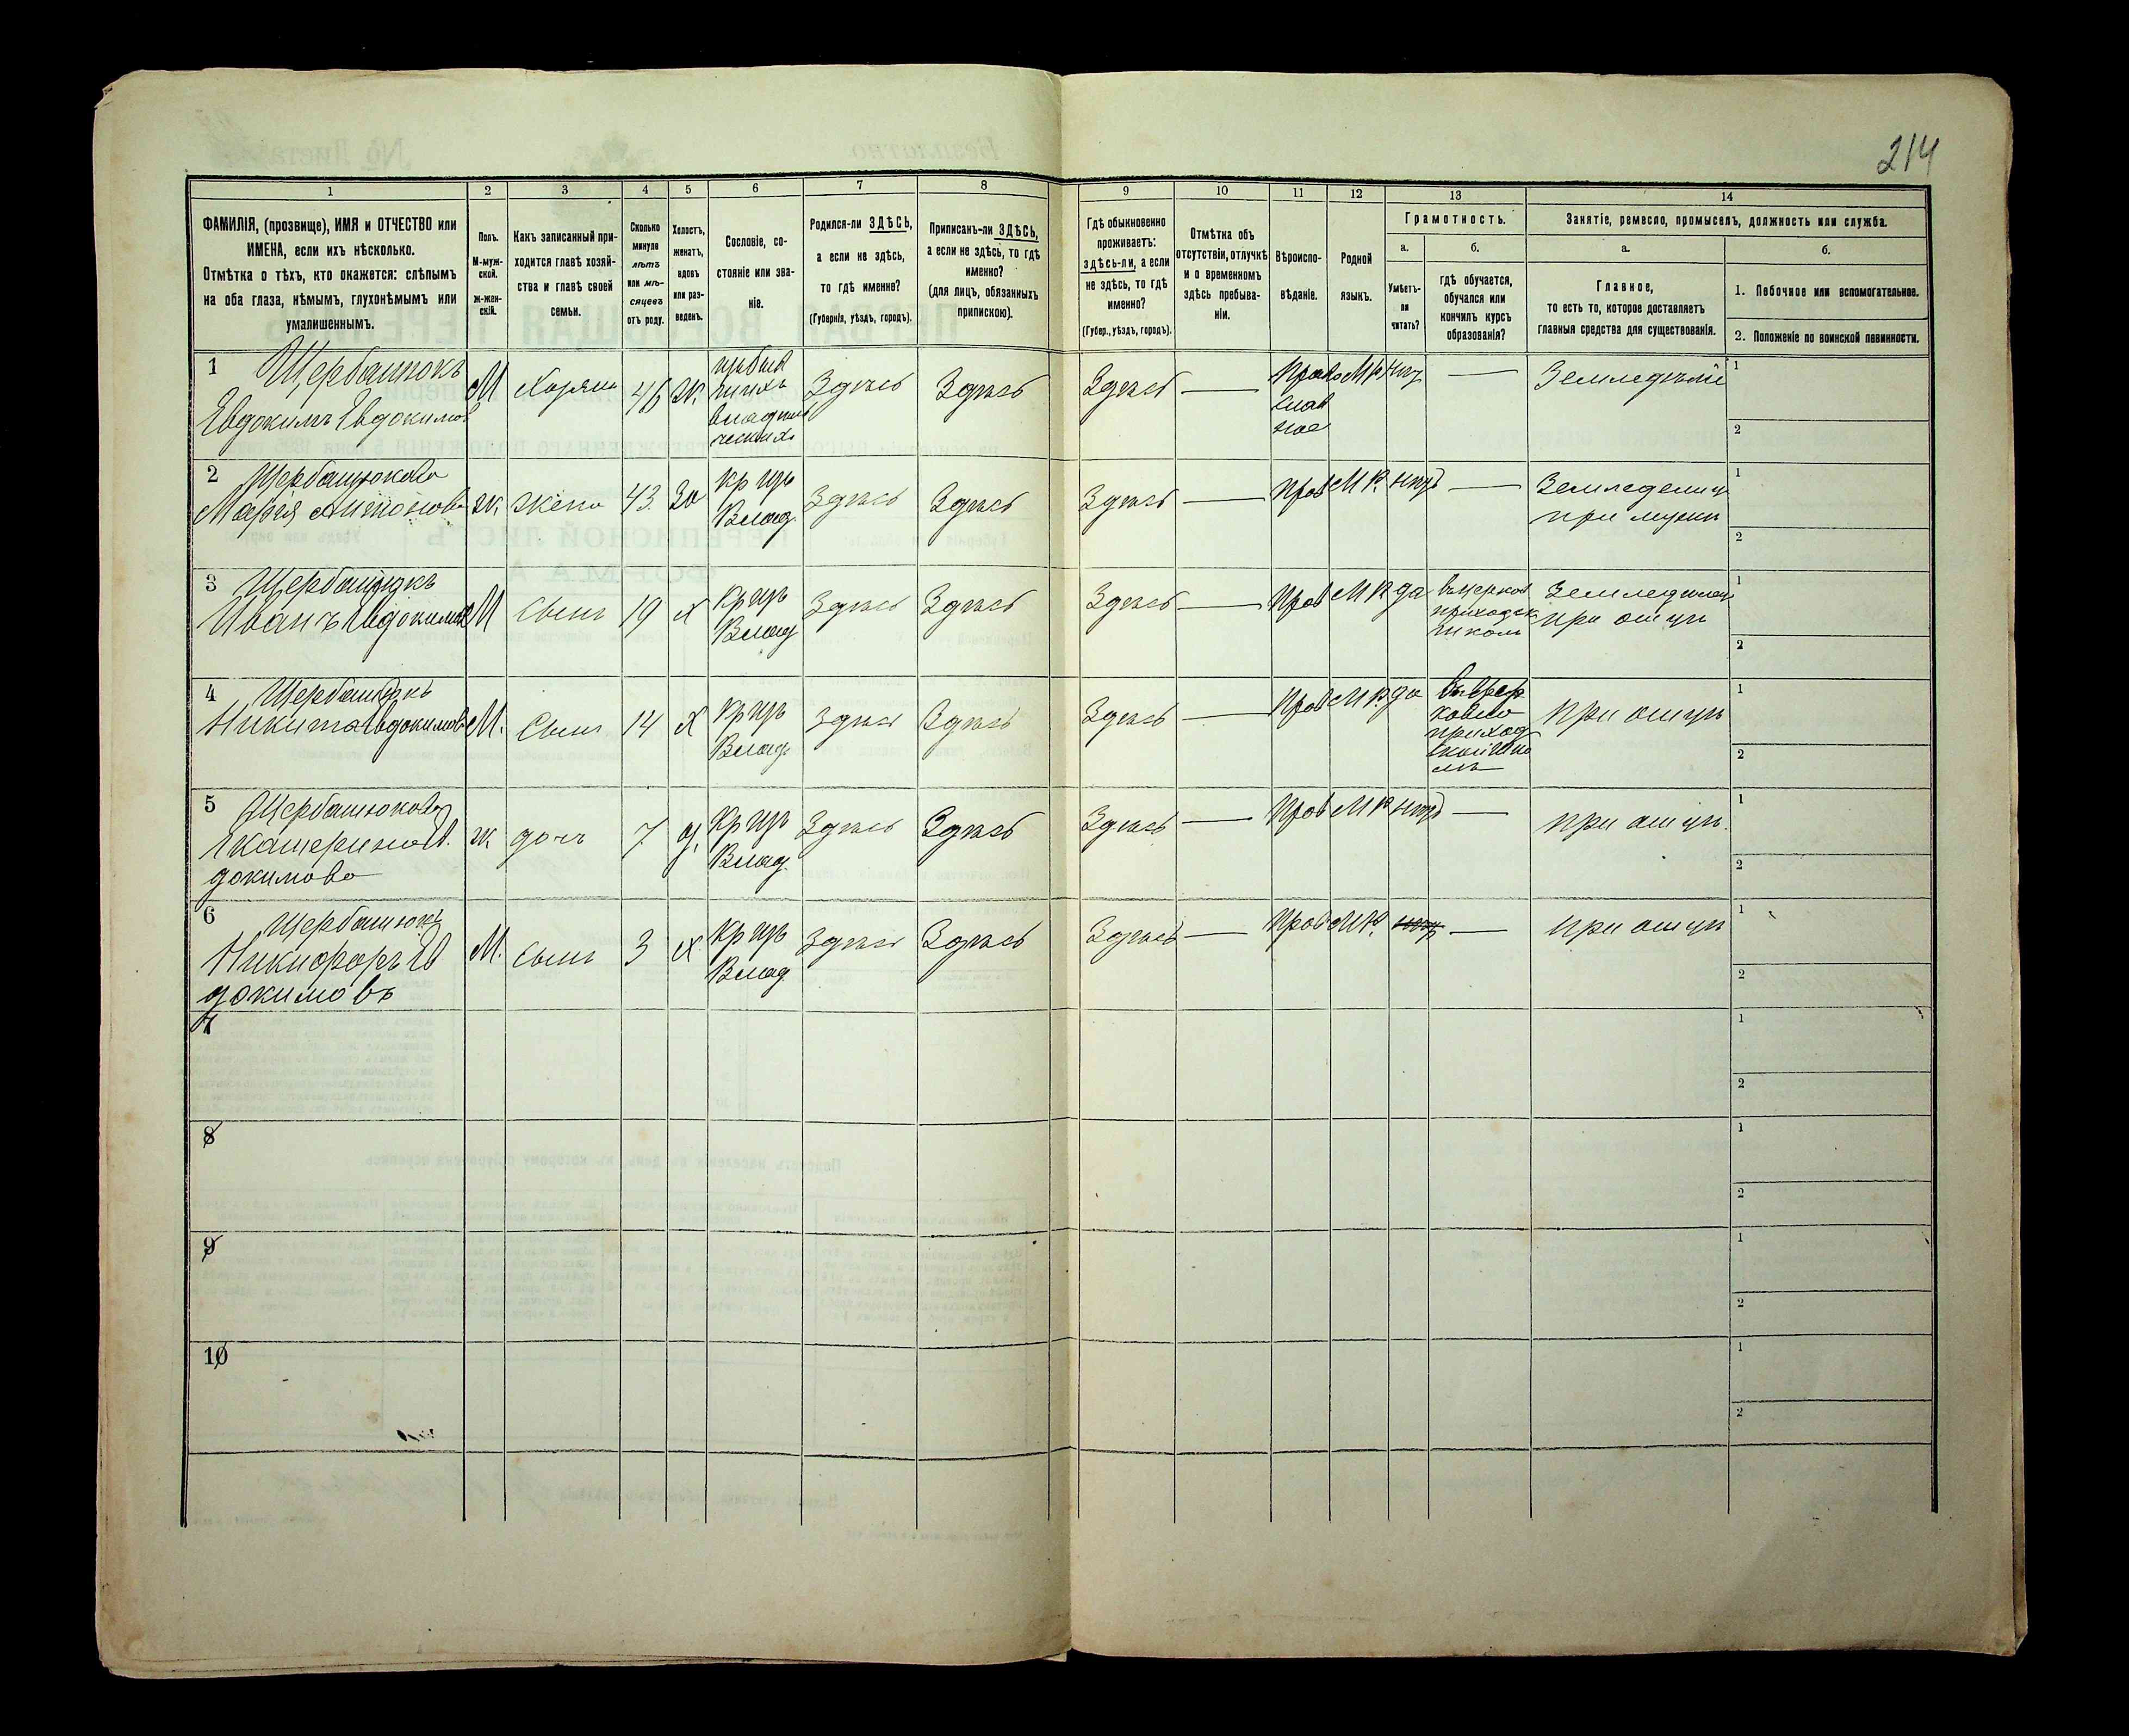 214
1 2 3 4 5 6 7 8 9 10 11 12 13 14
ФАМИЛІЯ, (прозвище), ИМЯ и ОТЧЕСТВО или
ИМЕНА, если ихъ нѣсколько.
Отмѣтка о тѣхъ, кто окажется: слѣпымъ
на оба глаза, нѣмымъ, глухонѣмымъ или
умалишеннымъ.
Полъ.
М-муж-
ской.
ж-жен-
скій.
Какъ записанный при-
ходится главѣ хозяй-
ства и главѣ своей
семьи.
Сколько
минуло
лѣтъ
или мѣ-
сяцевъ
отъ роду.
Холостъ,
женатъ,
вдовъ
или раз-
веденъ.
Сословіе, со-
стояніе или зва-
ніе.
Родился-ли ЗДѢСЬ,
а если не здѣсь,
то гдѣ именно?
(Губернія, уѣздъ, городъ).
Приписанъ-ли ЗДѢСЬ,
а если не здѣсь, то гдѣ
именно?
(для лицъ, обязанныхъ
припискою).
Гдѣ обыкновенно
проживаетъ:
здѣсь-ли, а если
не здѣсь, то гдѣ
именно?
(Губер., уѣздъ, городъ).
Отмѣтка объ
отсутствіи, отлучкѣ
и о временномъ
здѣсь пребыва-
ніи.
Вѣроиспо-
вѣданіе.
Родной
языкъ.
Грамотность.
а.
Умѣетъ-
ли
читать?
б.
гдѣ обучается,
обучался или
кончилъ курсъ
образованія?
Занятіе, ремесло, промыселъ, должность или служба.
а.
Главное,
то есть то, которое доставляетъ
главныя средства для существованія.
б.
1. Побочное или вспомогательное.
2. Положеніе по воинской повинности.
1 Щербатюкъ
Евдокимъ Евдокимов
М
Хозяин
46
ж.
Здѣсь
Здѣсь
Здѣсь
—
Право
слав
ное
Мр
нѣт
—
Земледѣліе
1
2
2 Щербатюкова
Марія Антонова
ж.
жена
43
За
кр изъ
Влад.
Здѣсь
Здѣсь
Здѣсь
—
Прав
М Р.
нѣтъ
—
при мужѣ
1
2
3 Щербатюкъ
Иванъ Евдокимов
М
Сынъ
19
х
Кр изъ
Влад
Здѣсь
Здѣсь
Здѣсь
—
Прав
М Р
да
въ церков
приходск
школѣ
при отцѣ
1
2
4 Щербатюкъ
Никита Евдокимовъ
М.
Сынъ
14
Х
Кр изъ
Влад.
Здѣсь
Здѣсь
Здѣсь
—
Прав
М Р
да
въ цер
ковно
приход
ской шко
лѣ
при отцѣ
1
2
5 Щербатюкова
Екатерина Ев.
докимова
ж
дочь
7
д.
Кр изъ
Влад.
Здѣсь
Здѣсь
Здѣсь
—
Прав
М Р
нѣтъ
—
при отцѣ.
1
2
6 Щербатюкъ
Никифоръ Ев
докимовъ
М.
Сынъ
3
х
Кр изъ
Влад
Здѣсь
Здѣсь
Здѣсь
—
Прав
М Р.
—
при отцѣ
1
2
7
1
2
8
1
2
9
1
2
10
1
2